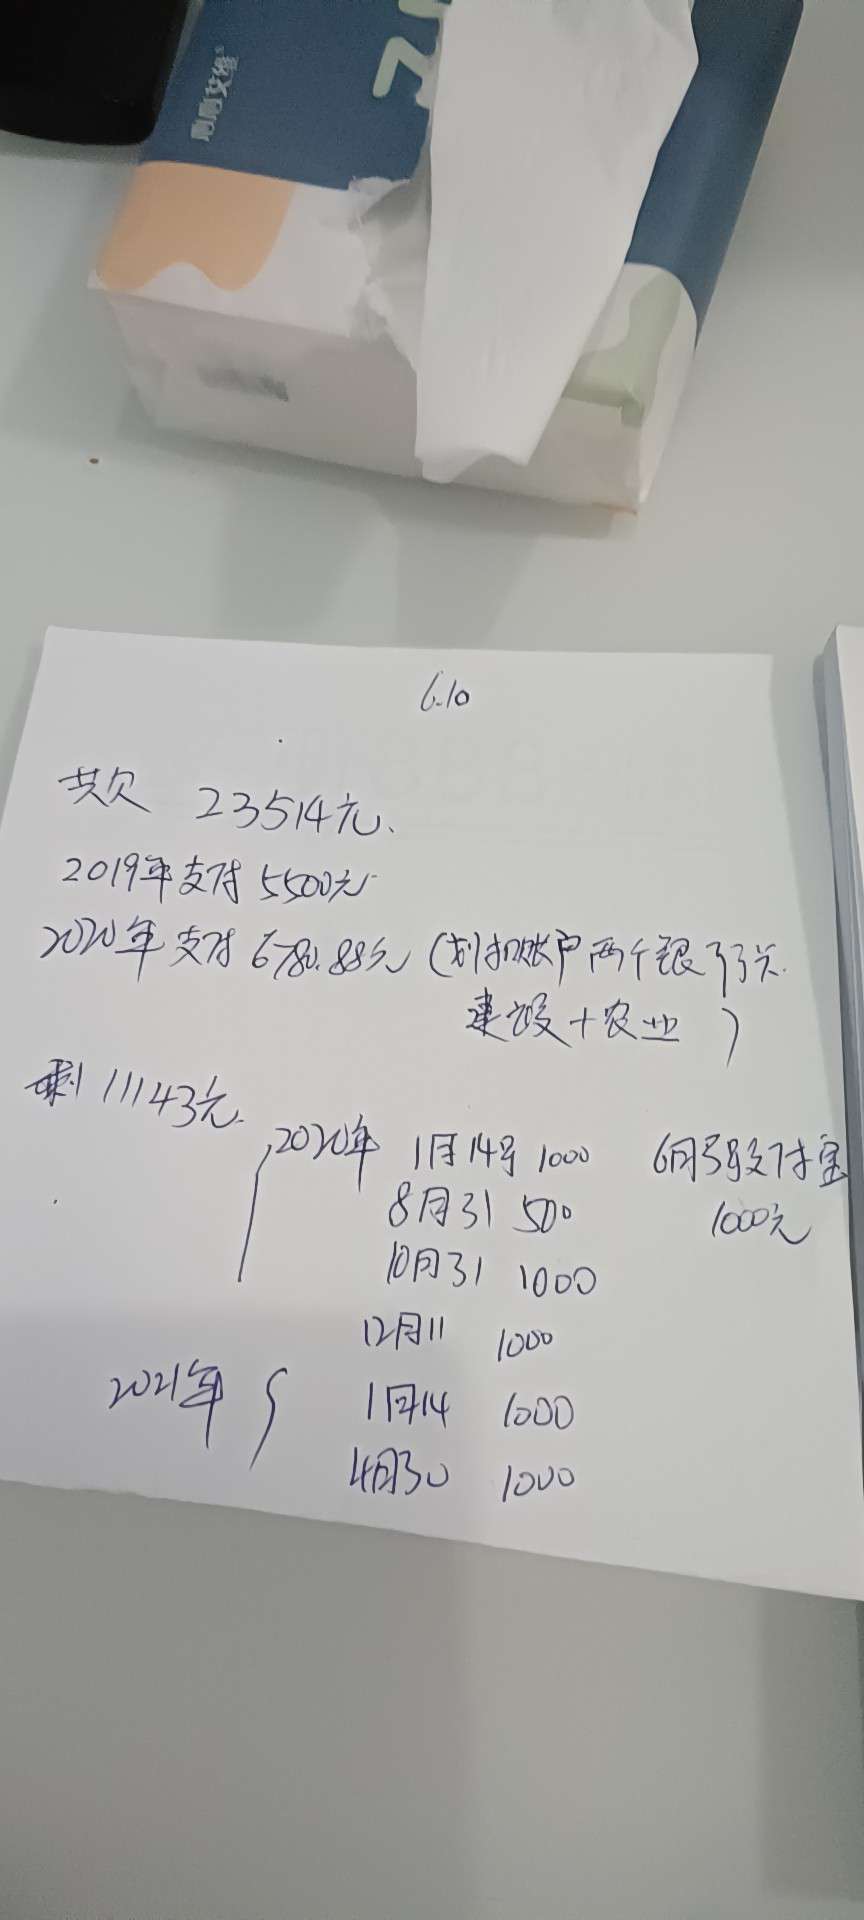 心心艾维
6.10
共欠 23514元、
2019年支付5500元
2020年支付6780.88元(划扣账户两个银行卡
建设+农业)
剩11143元
2020年 1月14号 1000 6月3号支付宝
8月31 500 1000元
10月31 1000
12月11 1000
2021年 1月14 1000
4月30 1000